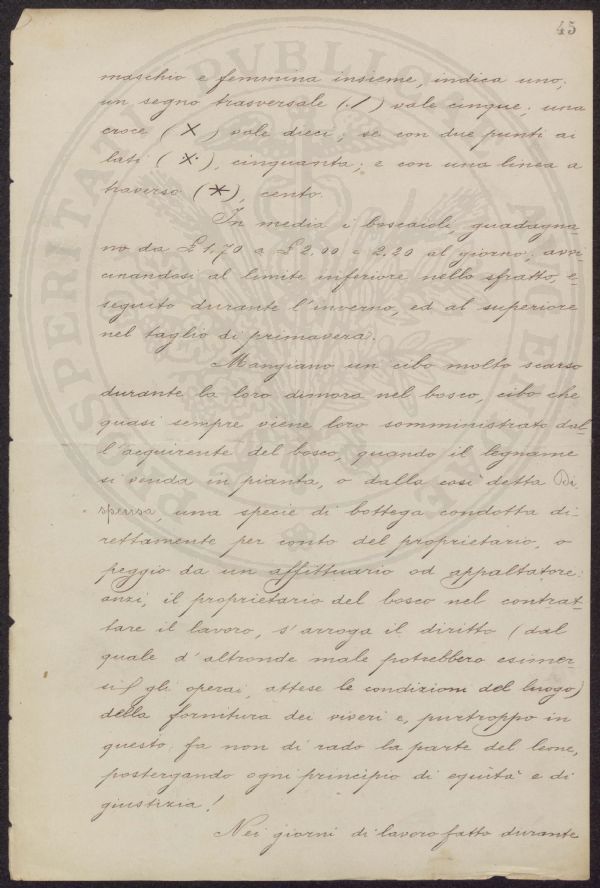 45
maschio e femmina insieme, indica uno;
un segno trasversale (./) vale cinque; una
croce (X) vale dieci; se con due punti ai
lati (·X·), cinquanta; e con una linea a
traverso (*), cento.
In media i boscaioli guadagna-
no da £ 1,70 a £ 2,00 e 2,20 al giorno, avvi-
cinandosi al limite inferiore nello sfratto, e-
seguito durante l'inverno, ed al superiore
nel taglio di primavera.
Mangiano un cibo molto scarso
durante la loro dimora nel bosco, cibo che
quasi sempre viene loro somministrato dal-
l'acquirente del bosco, quando il legname
si venda in pianta, o dalla così detta Di-
spensa, una specie di bottega condotta di-
rettamente per conto del proprietario, o
peggio da un affittuario od appaltatore:
anzi, il proprietario del bosco nel contrat-
tare il lavoro, s'arroga il diritto (dal
quale d'altronde male potrebbero esimer-
si gli operai, attese le condizioni del luogo)
della fornitura dei viveri e, purtroppo in
questo, fa non di rado la parte del leone,
postergando ogni principio di equità e di
giustizia!
Nei giorni di lavoro fatto durante
PVBLICAE PROSPERITATI